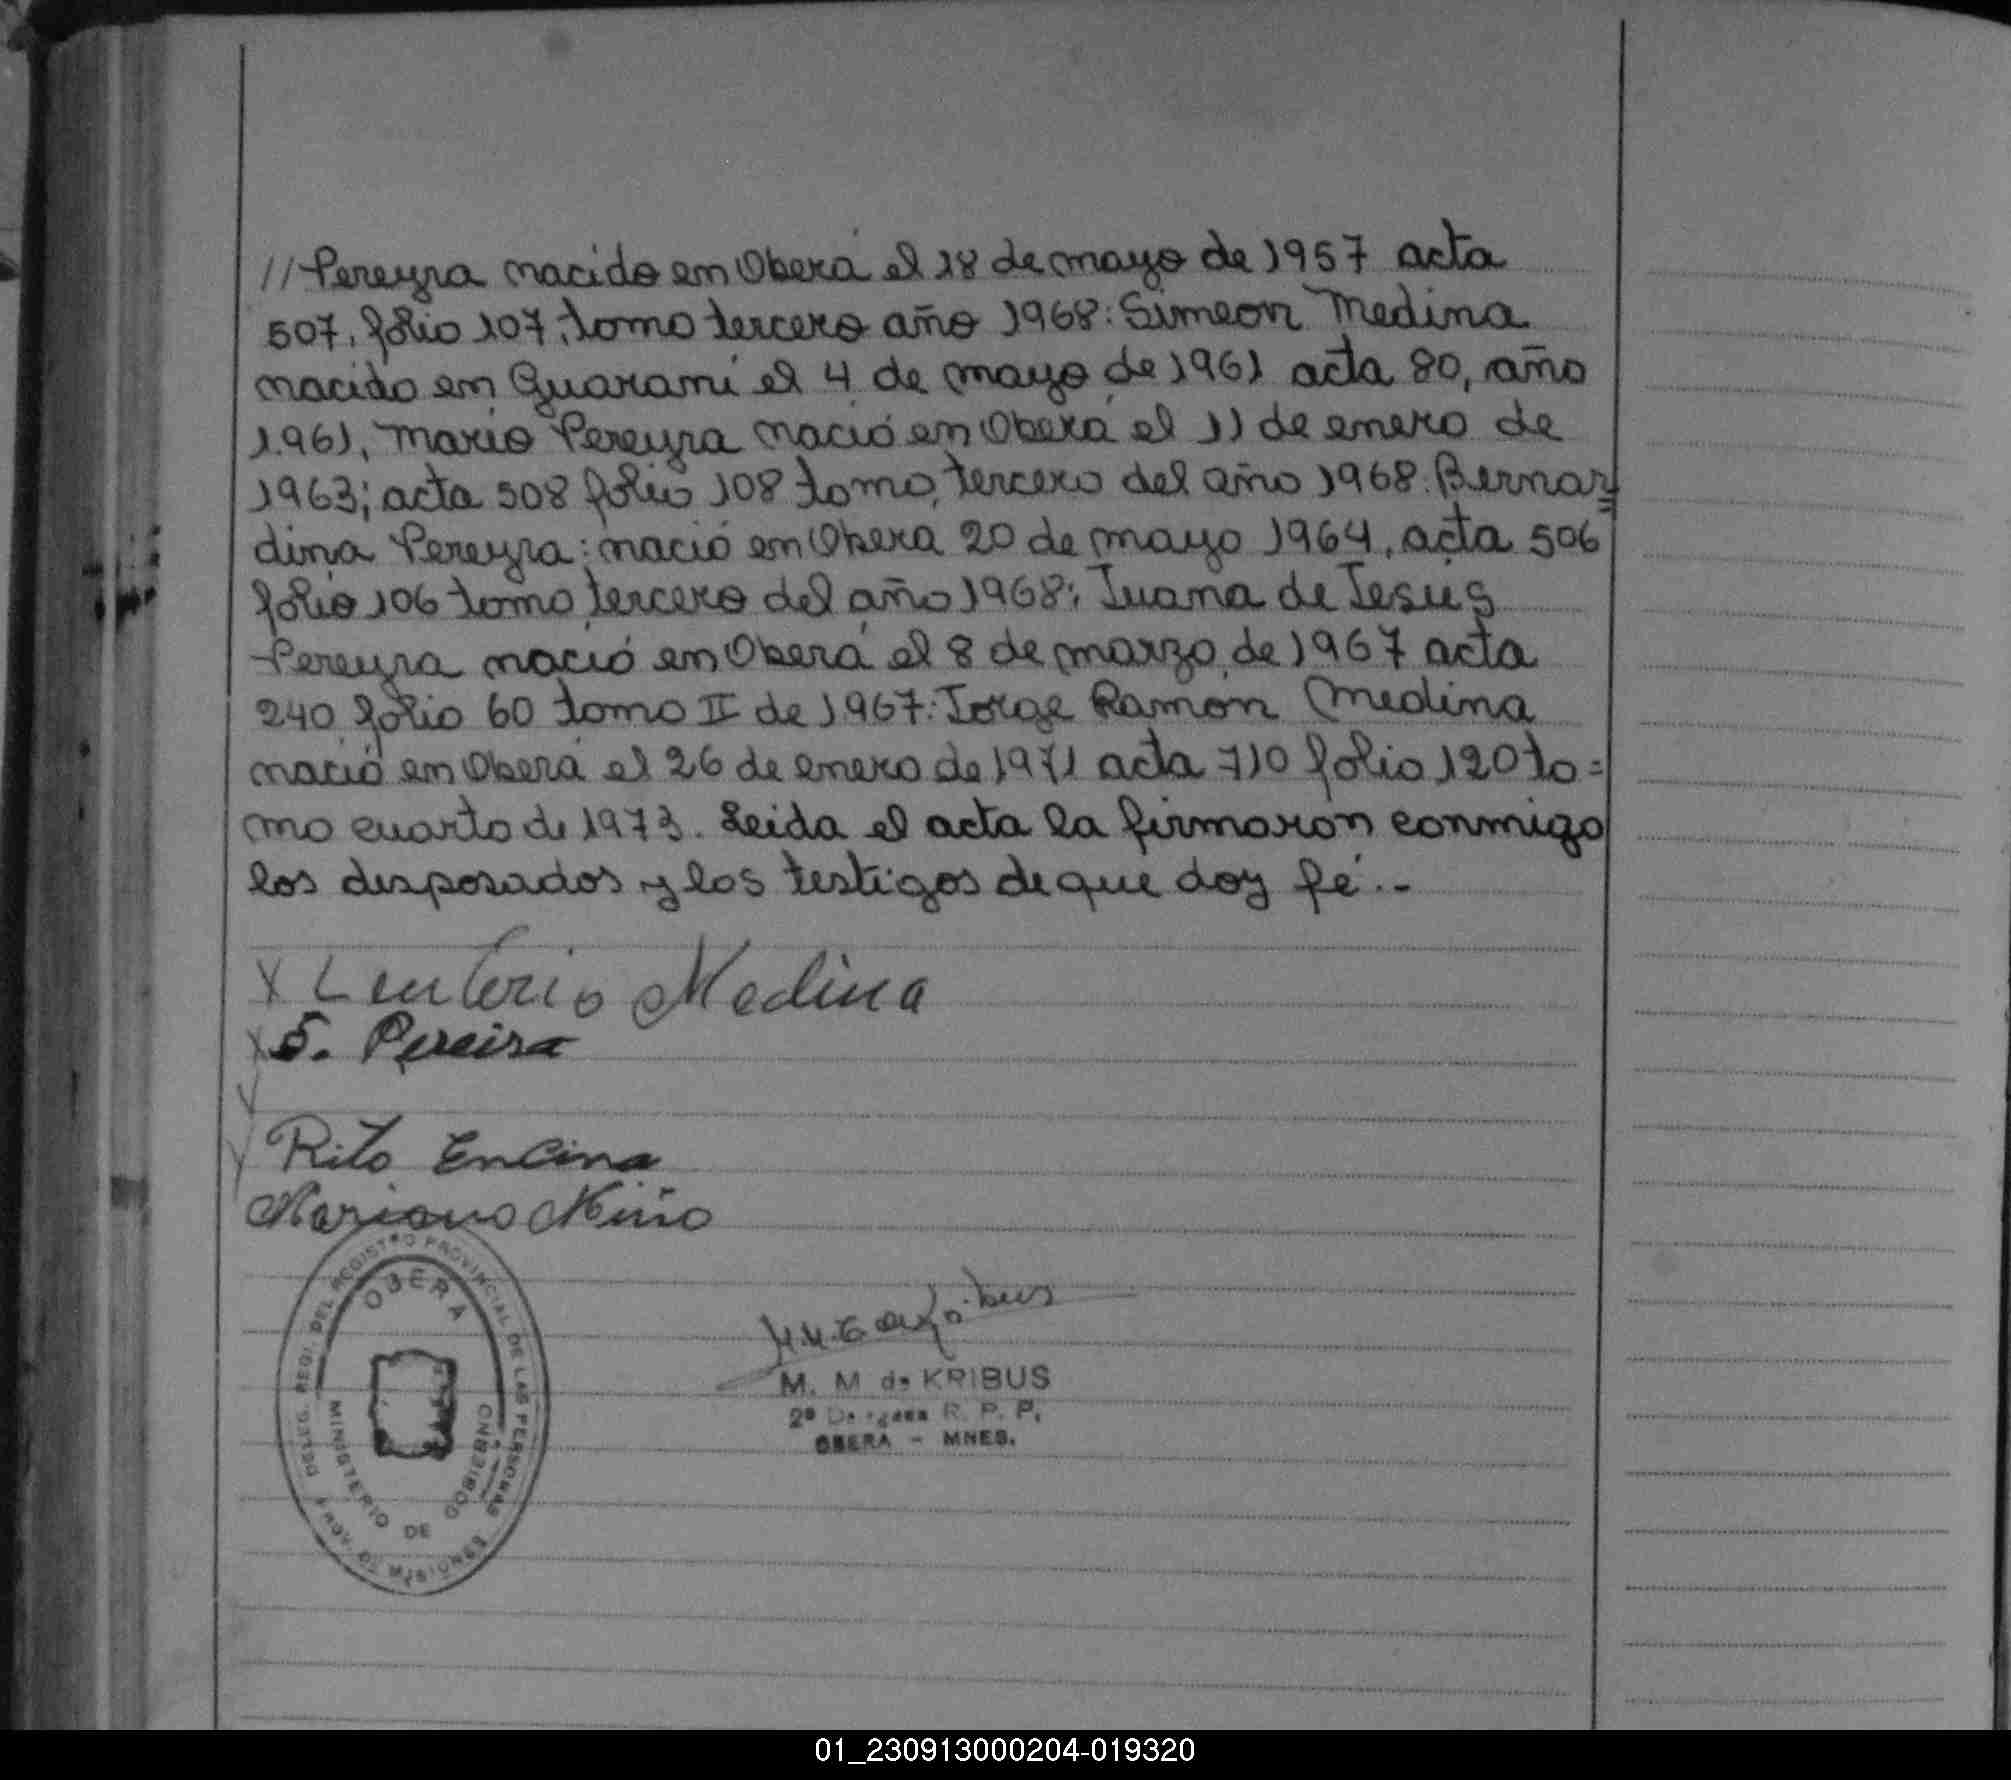 // Pereyra nacido en Oberá el 18 de mayo de 1957 acta
507, folio 107, tomo tercero año 1968: Simeon Medina
nacido en Guaraní el 4 de mayo de 1961 acta 80, año
1.961, Mario Pereyra nació en Oberá el 11 de enero de
1963; acta 508 folio 108 tomo, tercero del año 1968. Bernar=
dina Pereyra: nació en Obera 20 de mayo 1964, acta 506
folio 106 tomo tercero del año 1968; Juana de Jesús
Pereyra nació en Oberá el 8 de marzo de 1967 acta
240 folio 60 tomo II de 1967: Jorge Ramón Medina
nació en Oberá el 26 de enero de 1971 acta 710 folio 120 to=
mo cuarto de 1973. Leida el acta la firmaron conmigo
los desposados y los testigos de que doy fé.-
x Leuterio Medina
x S. Pereira
Rito Encina
Mariano Miño
DELEG. REGI. DEL REGISTRO PROVINCIAL DE LAS PERSONAS
OBERA
MINISTERIO DE GOBIERNO
PROV. DE MISIONES
M. M de KRIBUS
2ª R. P. P.
OBERA - MNES.
01_230913000204-019320